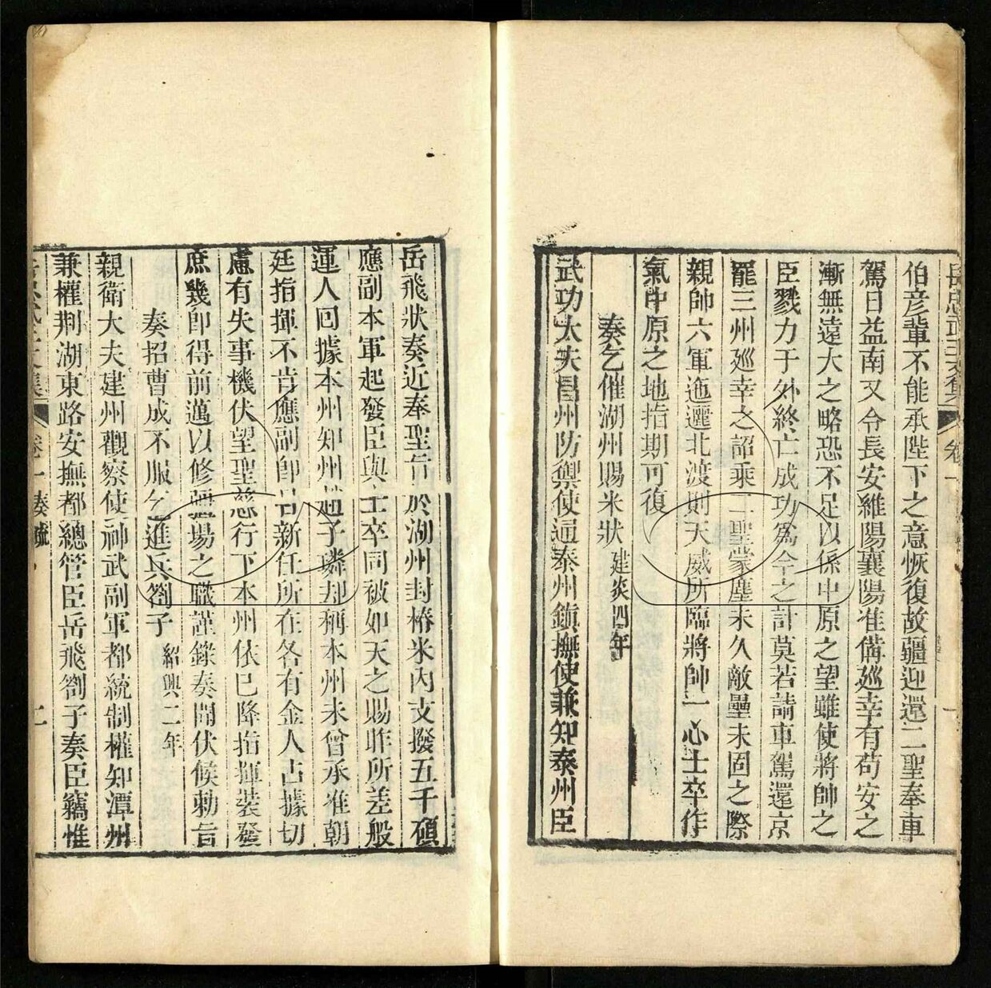 岳忠武王文集　卷一　一
伯彥輩不能承陛下之意恢復故疆迎還二聖奉車
駕日益南又令長安維陽襄陽准備廵幸有苟安之
漸無遠大之略恐不足以係中原之望雖使將帥之
臣戮力于外終亡成功爲今之計莫若請車駕還京
罷三州廵幸之詔乘二聖蒙塵未久敵壘未固之際
親帥六軍迤邐北渡則天威所臨將帥一心士卒作
氣中原之地指期可復
奏乞催湖州賜米狀 建炎四年
武功大夫昌州防禦使通泰州鎮撫使兼知泰州臣
岳飛狀奏近奉聖旨於湖州封樁米內支撥五千碩
應副本軍起發臣與士卒同被如天之賜昨所差般
運人回據本州知州趙子璘却稱本州未曾承准朝
廷指揮不肯應副卽日新任所在各有金人占據切
慮有失事機伏望聖慈行下本州依已降指揮裝發
庶幾卽得前邁以修疆場之職謹錄奏聞伏候勅旨
奏招曹成不服乞進兵劄子 紹興二年
親衛大夫建州觀察使神武副軍都統制權知潭州
兼權荆湖東路安撫都總管臣岳飛劄子奏臣竊惟
岳忠武王文集　卷一奏疏　二